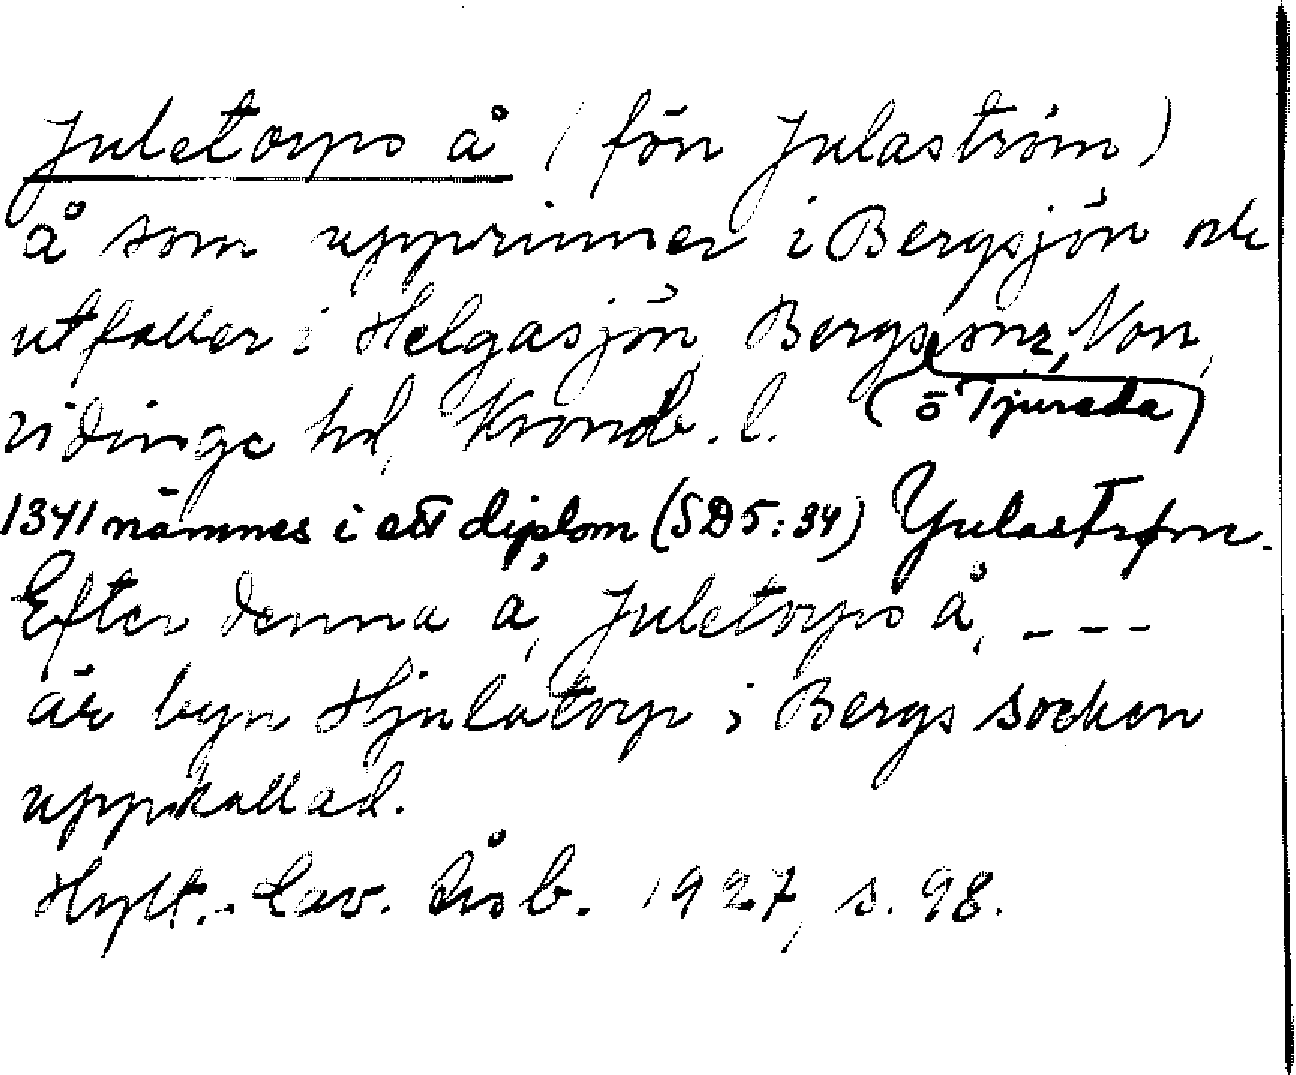 Juletorps å (förr Julaström)
å som upprinner i Bergsjön och
utfaller i Helgasjön, Bergs snr, Norr
(ö Tjureda)
vidinge hd, Kronob. l.
1341 nämnes i ett diplom (SD 5:34) Yulastrøm.
Efter denna å, Juletorps å, ---
är byn Hjulatorp i Bergs socken
uppkallad.
Hylt.-Cav. Årsb. 1927, s. 98.